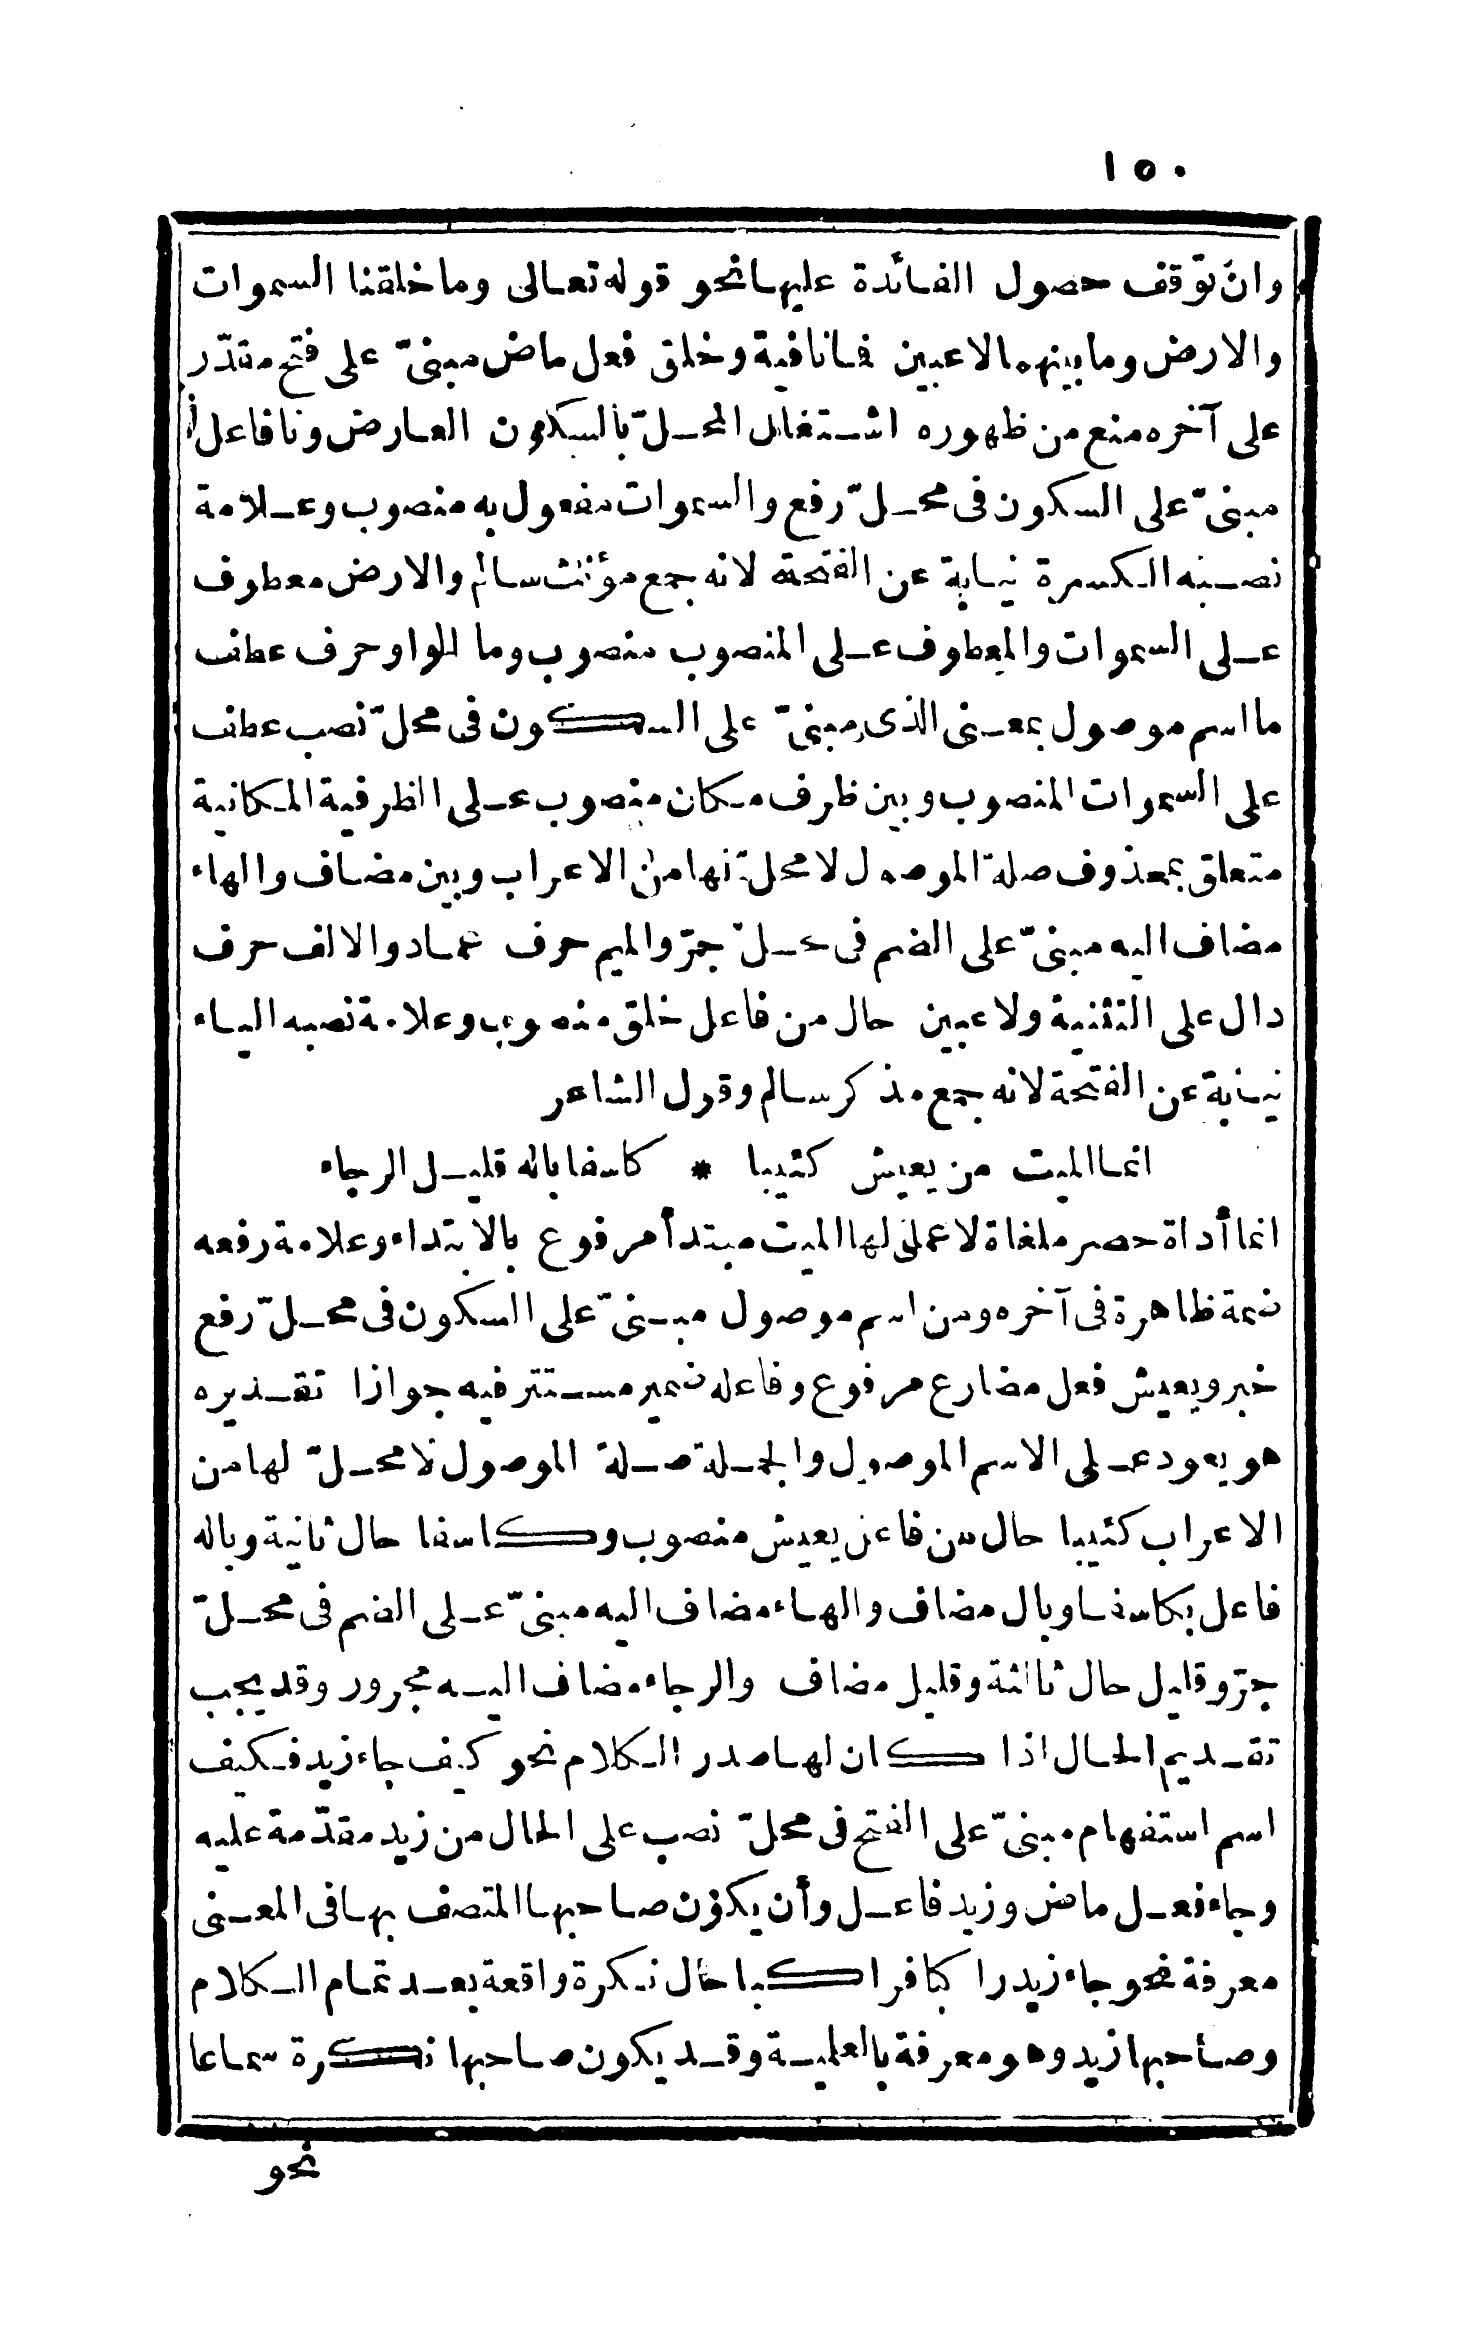 ١٥٠
وان توقف حصول الفائدة عليها نحو قوله تعالى وما خلقنا السموات
والارض وما بينهما لاعبين فما نافية وخلق فعل ماض مبنىّ على فتح مقدّر
على آخره منع من ظهوره اشتغال المحلّ بالسكون العارض ونا فاعل
مبنىّ على السكون فى محلّ رفع والسموات مفعول به منصوب وعلامة
نصبه الكسرة نيابة عن الفتحة لانه جمع مؤنث سالم والارض معطوف
على السموات والمعطوف على المنصوب منصوب وما الواو حرف عطف
ما اسم موصول بمعنى الذى مبنىّ على السكون فى محلّ نصب عطف
على السموات المنصوب وبين ظرف مكان منصوب على الظرفية المكانية
متعلق بمحذوف صلة الموصول لا محلّ لها من الاعراب وبين مضاف والهاء
مضاف اليه مبنىّ على الضم فى محلّ جرّ والميم حرف عماد والالف حرف
دال على التثنية ولاعبين حال من فاعل خلق منصوب وعلامة نصبه الياء
نيابة عن الفتحة لانه جمع مذكر سالم وقول الشاعر
انما الميت من يعيش كئيبا * كاسفا باله قليل الرجاء
انما أداة حصر ملغاة لا عمل لها الميت مبتدأ مرفوع بالابتداء وعلامة رفعه
ضمة ظاهرة فى آخره ومن اسم موصول مبنىّ على السكون فى محلّ رفع
خبر ويعيش فعل مضارع مرفوع وفاعله ضمير مستتر فيه جوازا تقديره
هو يعود على الاسم الموصول والجملة صلة الموصول لا محلّ لها من
الاعراب كئيبا حال من فاعل يعيش منصوب وكاسفا حال ثانية وباله
فاعل بكاسفا وبال مضاف والهاء مضاف اليه مبنىّ على الضم فى محلّ
جرّ وقليل حال ثالثة وقليل مضاف والرجاء مضاف اليه مجرور وقد يجب
تقديم الحال اذا كان لها صدر الكلام نحو كيف جاء زيد فكيف
اسم استفهام مبنىّ على الفتح فى محلّ نصب على الحال من زيد مقدّمة عليه
وجاء فعل ماض وزيد فاعل وأن يكون صاحبها المتصف بها فى المعنى
معرفة نحو جاء زيد راكبا فراكبا حال نكرة واقعة بعد تمام الكلام
وصاحبها زيد وهو معرفة بالعلمية وقد يكون صاحبها نكرة سماعا
نحو